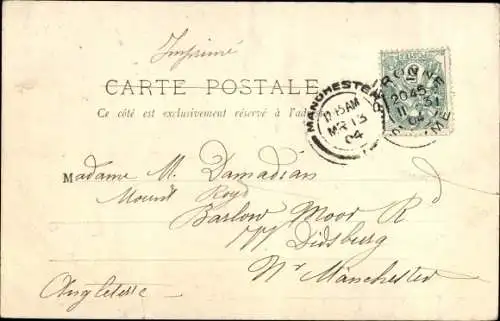 Imprimé
CARTE POSTALE
Ce côté est exclusivement réservé à l'adresse
MANCHESTER
11.15 AM
MR 13
04
PERONNE
20 45
11 3
04
SOMME
M
Madame M. Damadian
Mount Royd
Barlow Moor Rd
Didsburg
Nr Manchester
Angleterre